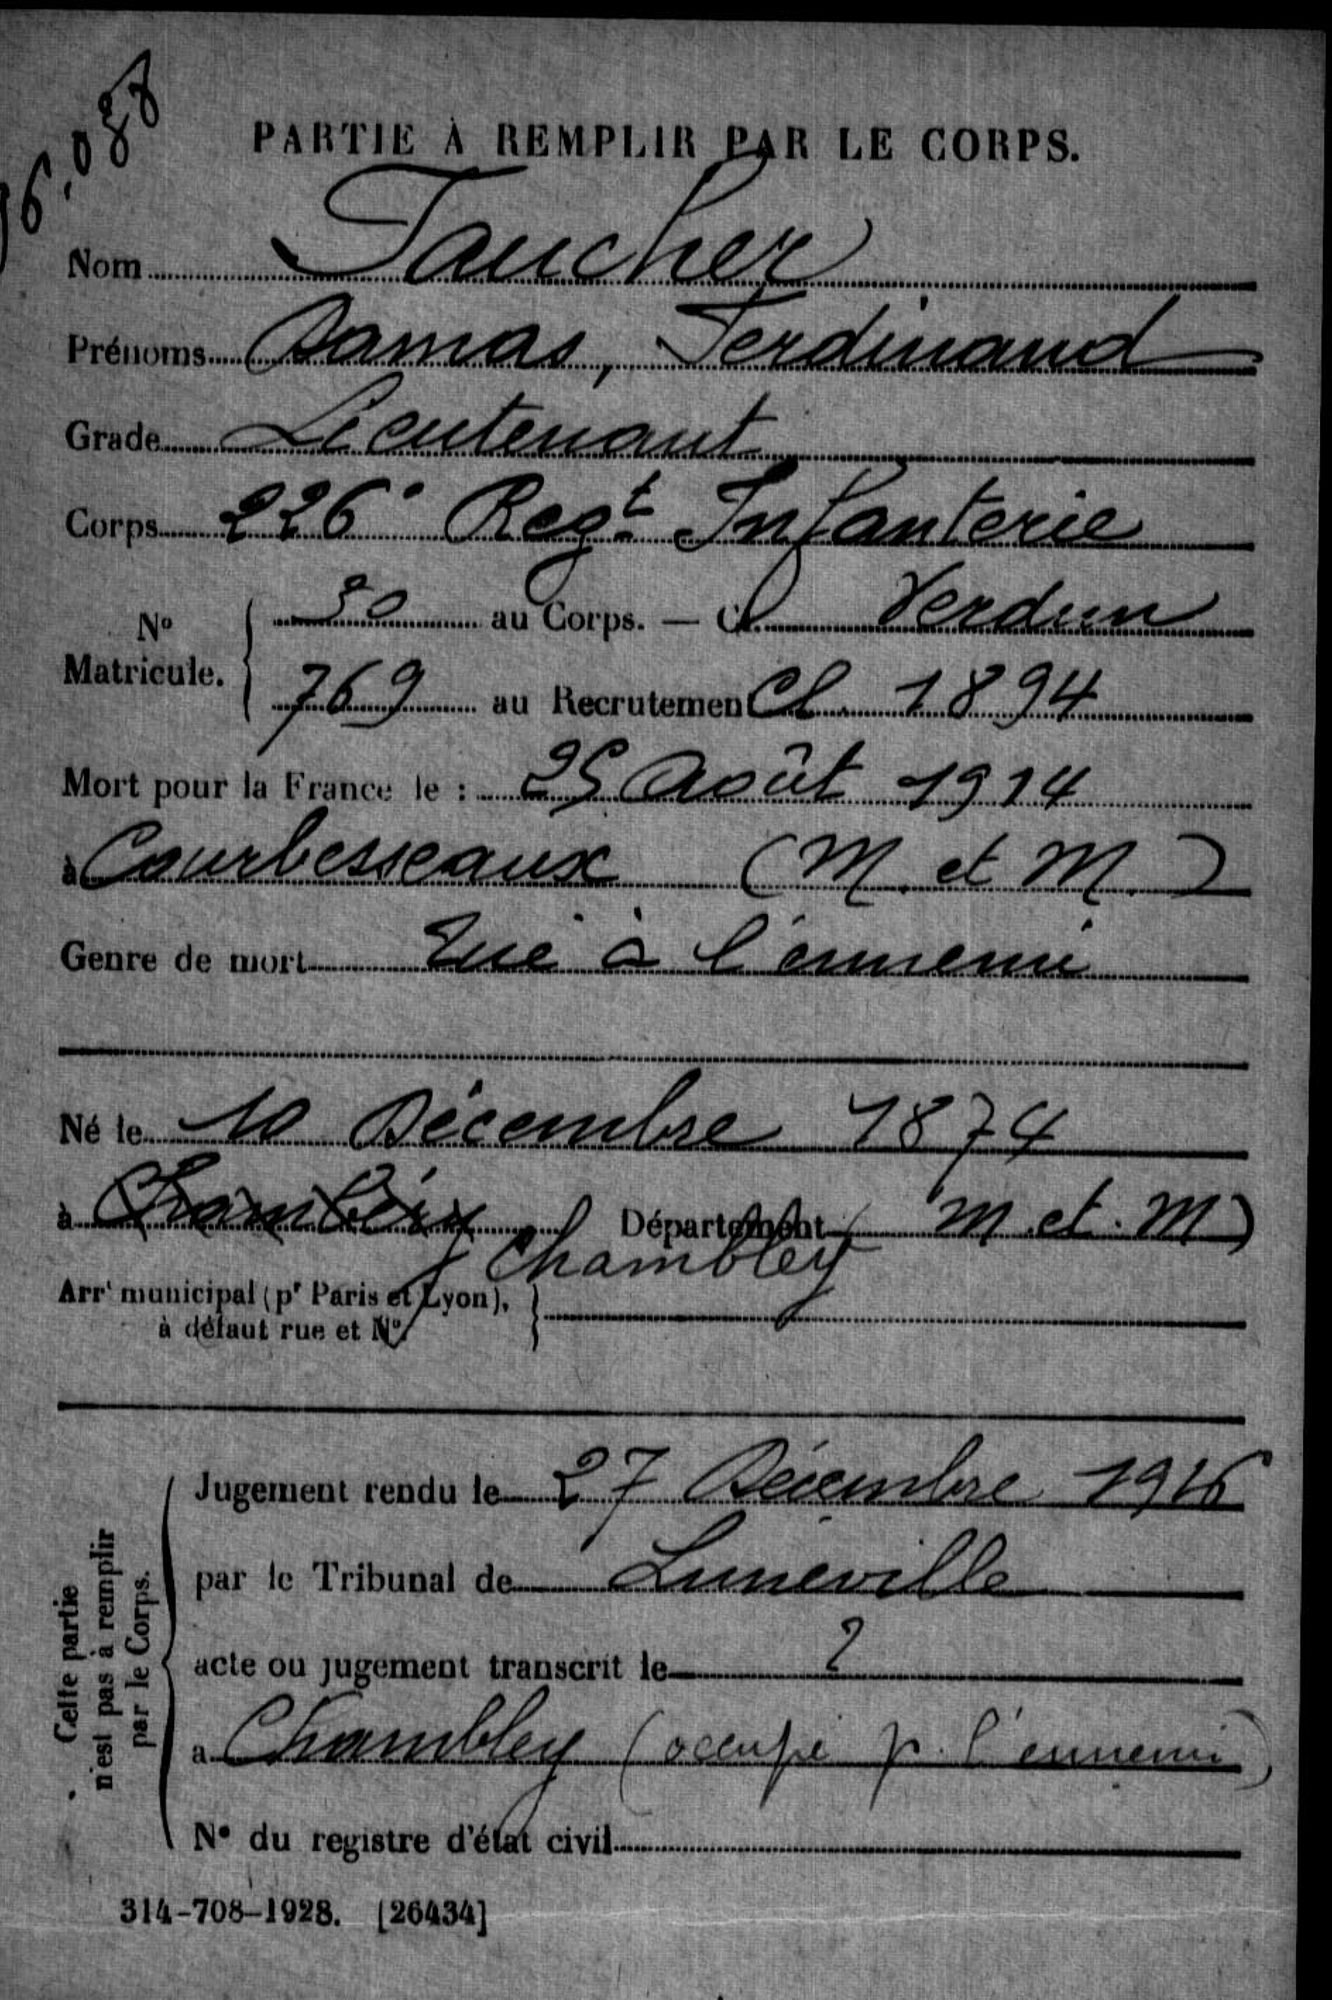 6.088
PARTIE À REMPLIR PAR LE CORPS.
Nom Faucher
Prénoms Damas, Ferdinand
Grade Lieutenant
Corps 226e Regt Infanterie
No Matricule. 30 au Corps. — Cl. Verdun
769 au Recrutement Cl. 1894
Mort pour la France le : 25 Août 1914
à Courbesseaux (M. et M.)
Genre de mort Tué à l'ennemi
Né le 10 Décembre 1874
à Chambéry Département (M. et. M)
Chambley
Arrt municipal (pr Paris et Lyon),
à défaut rue et No.
Cette partie
n'est pas à remplir
par le Corps.
Jugement rendu le 27 Décembre 1916
par le Tribunal de Lunéville
acte ou jugement transcrit le ?
a Chambley (occupé p. l'ennemi)
No du registre d'état civil
314-708-1928. [26434]